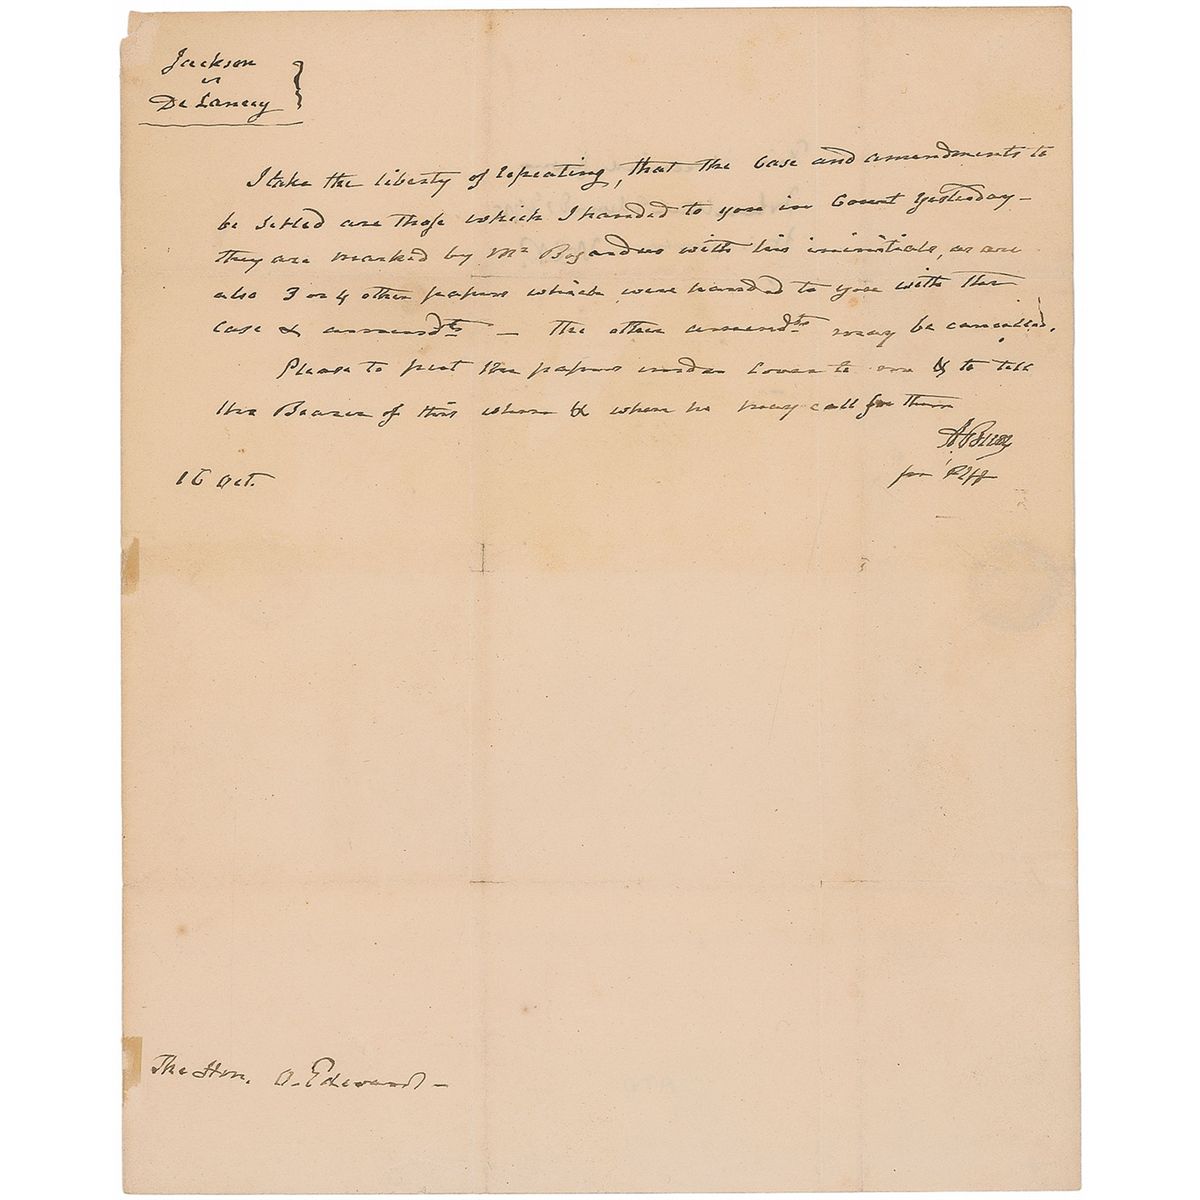 Jackson
vs
De Lancey
I take the liberty of repeating, that the Case and amendments to
be settled are those which I handed to you in Court yesterday –
they are marked by Mr Bogardus with his inimitials, as are
also 3 or 4 other papers which were handed to you with the
case & amendts – the other amendts may be cancelled.
Please to put the papers under cover to me & to tell
the Bearer of this when & where he may call for them
A Burr
for Plff
16 Oct.
The Hon. O. Edwards –